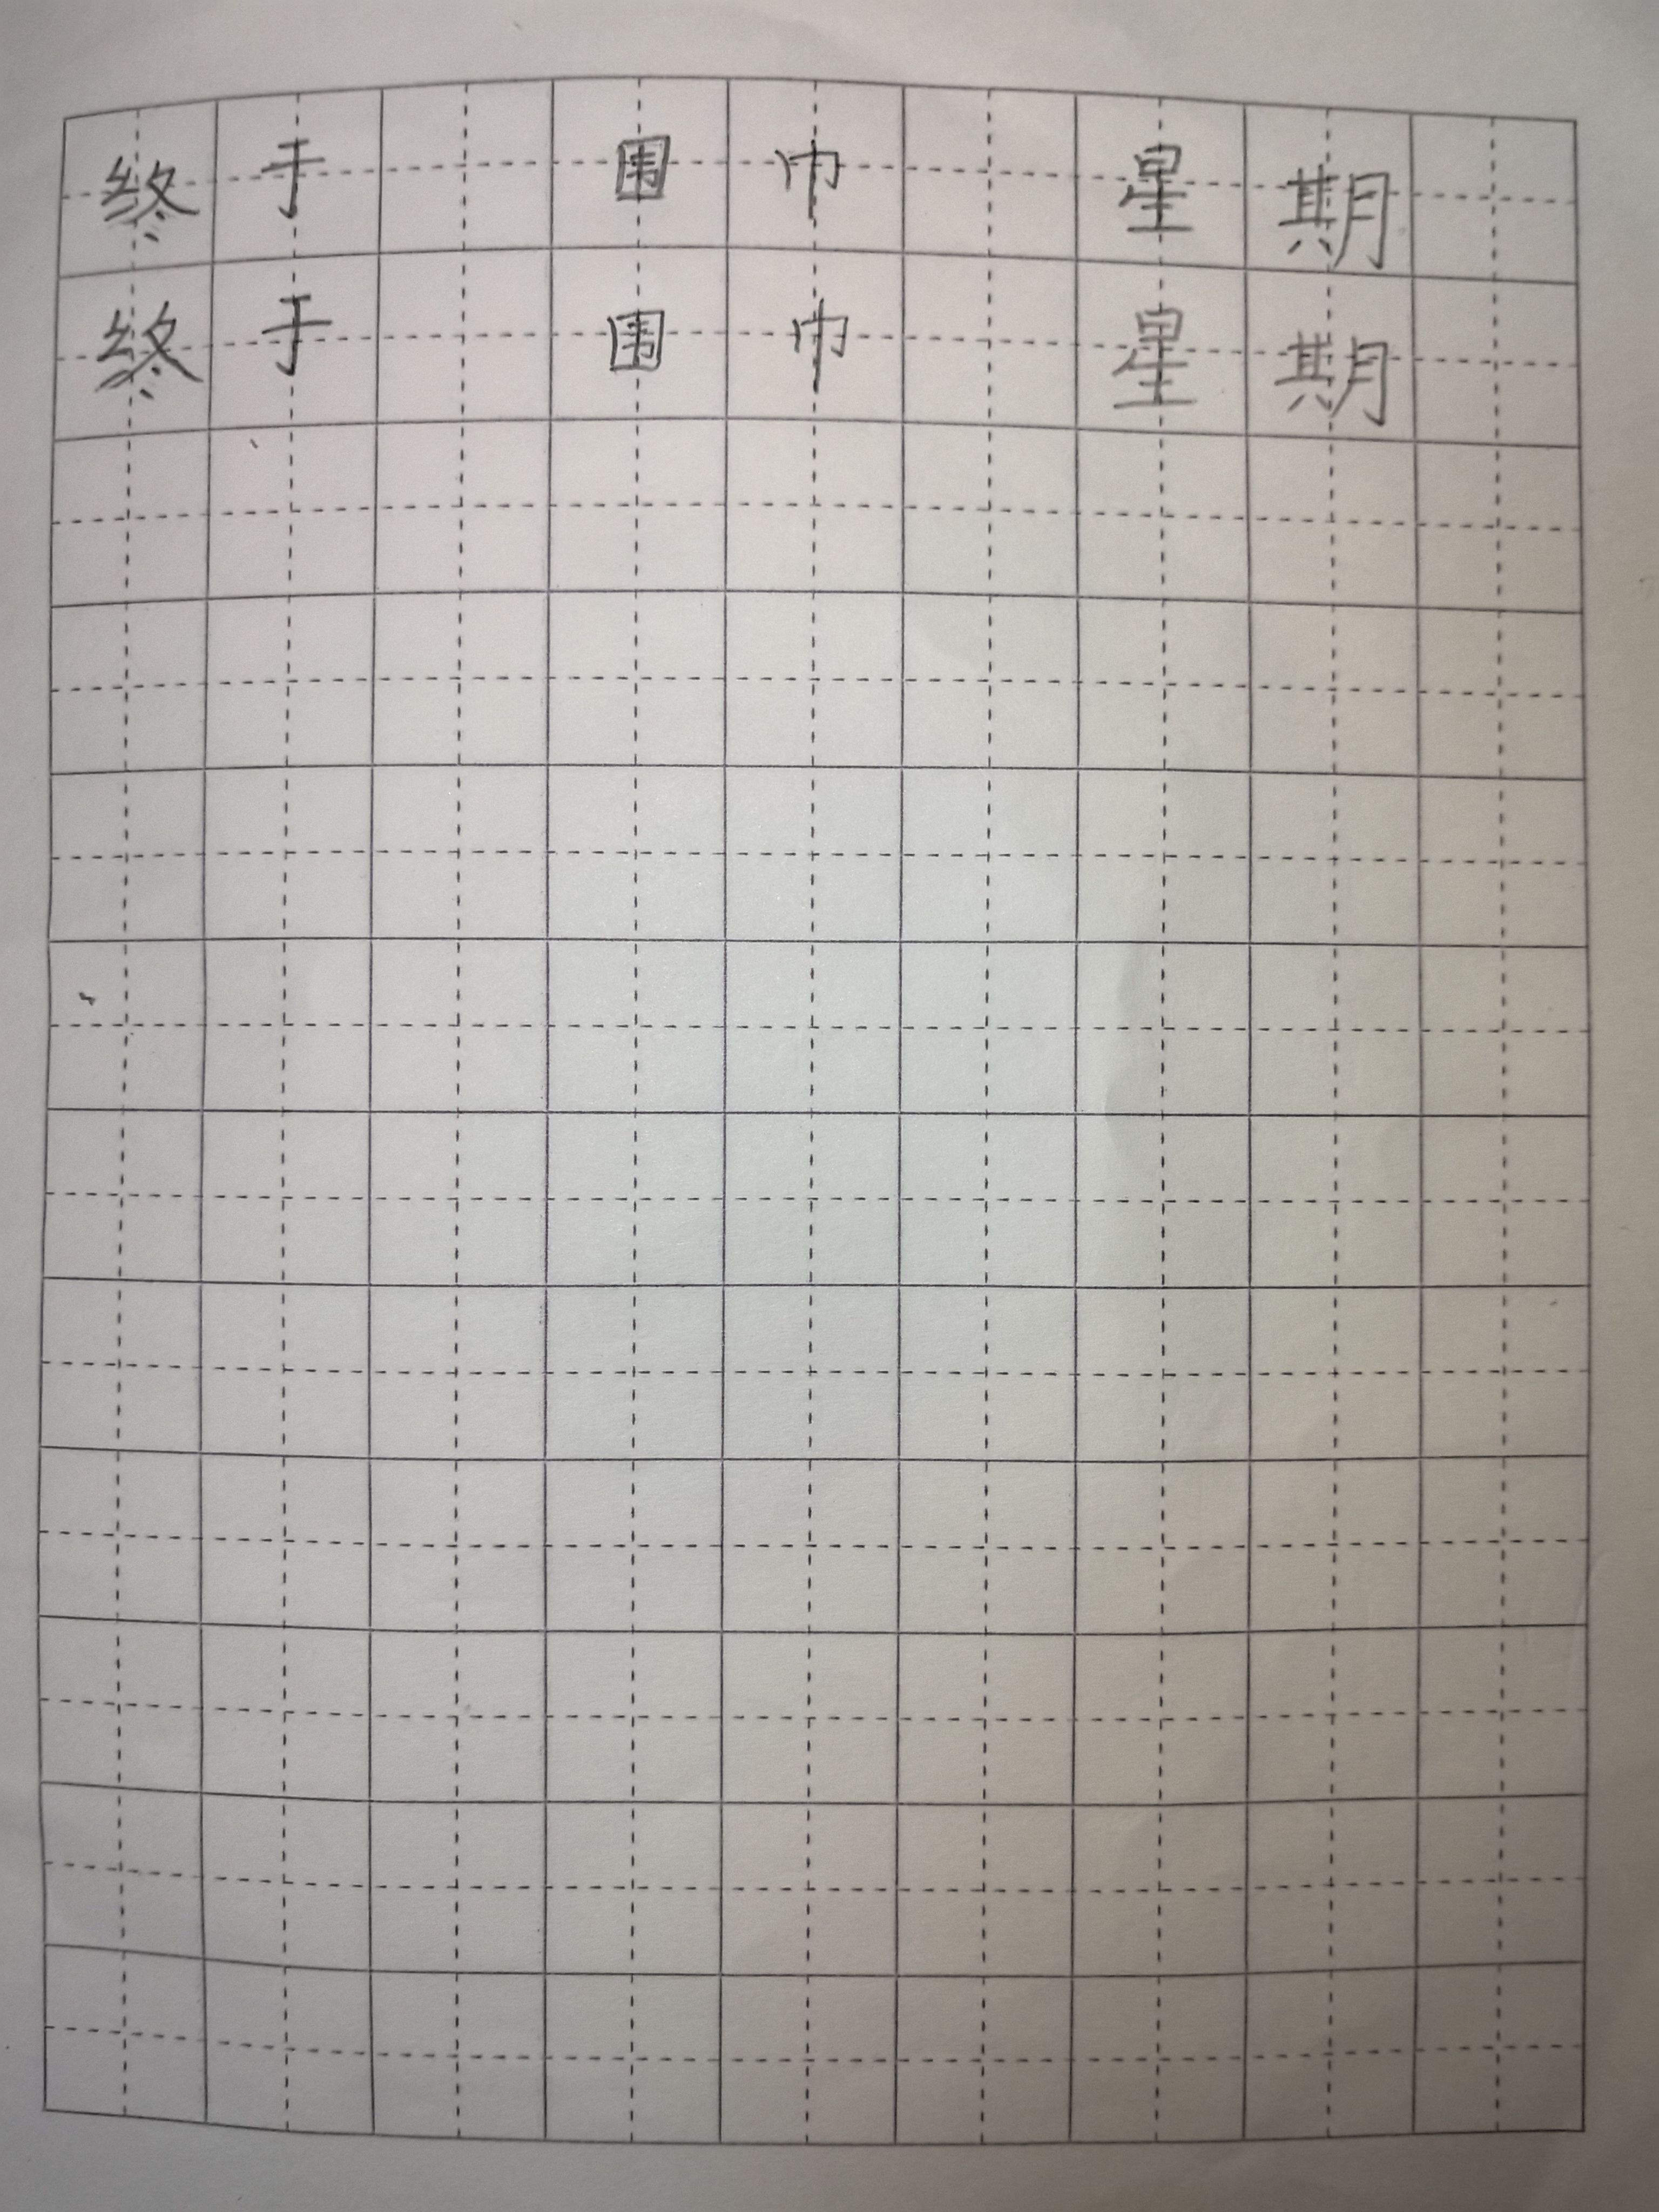 终于 围巾 星期
终于 围巾 星期